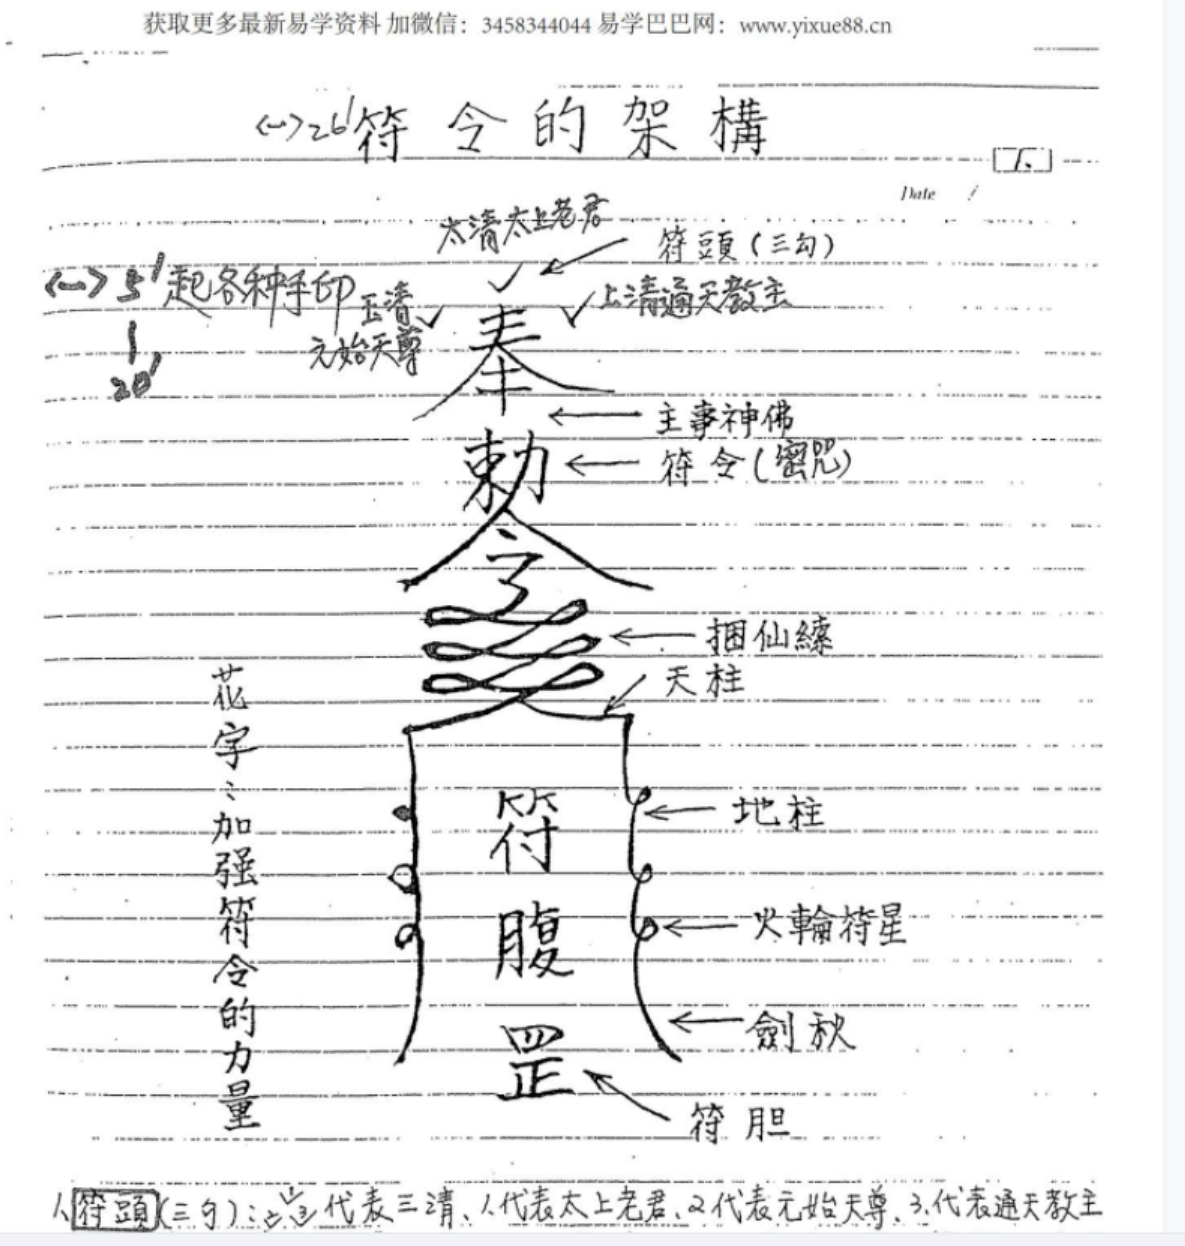 获取更多最新易学资料 加微信：3458344044 易学巴巴网：www.yixue88.cn
<一>26' 符令的架構
1.
Date /
太清太上老君
符頭（三勾）
<一>5' 起各种手印
玉清
元始天尊
上清通天教主
20'
奉
主事神佛
勅
符令（密咒）
令
捆仙繩
天柱
花字：加强符令的力量
符
地柱
腹
火輪符星
劍秋
罡
符胆
1.符頭(三勾)：代表三清、1.代表太上老君、2.代表元始天尊、3.代表通天教主